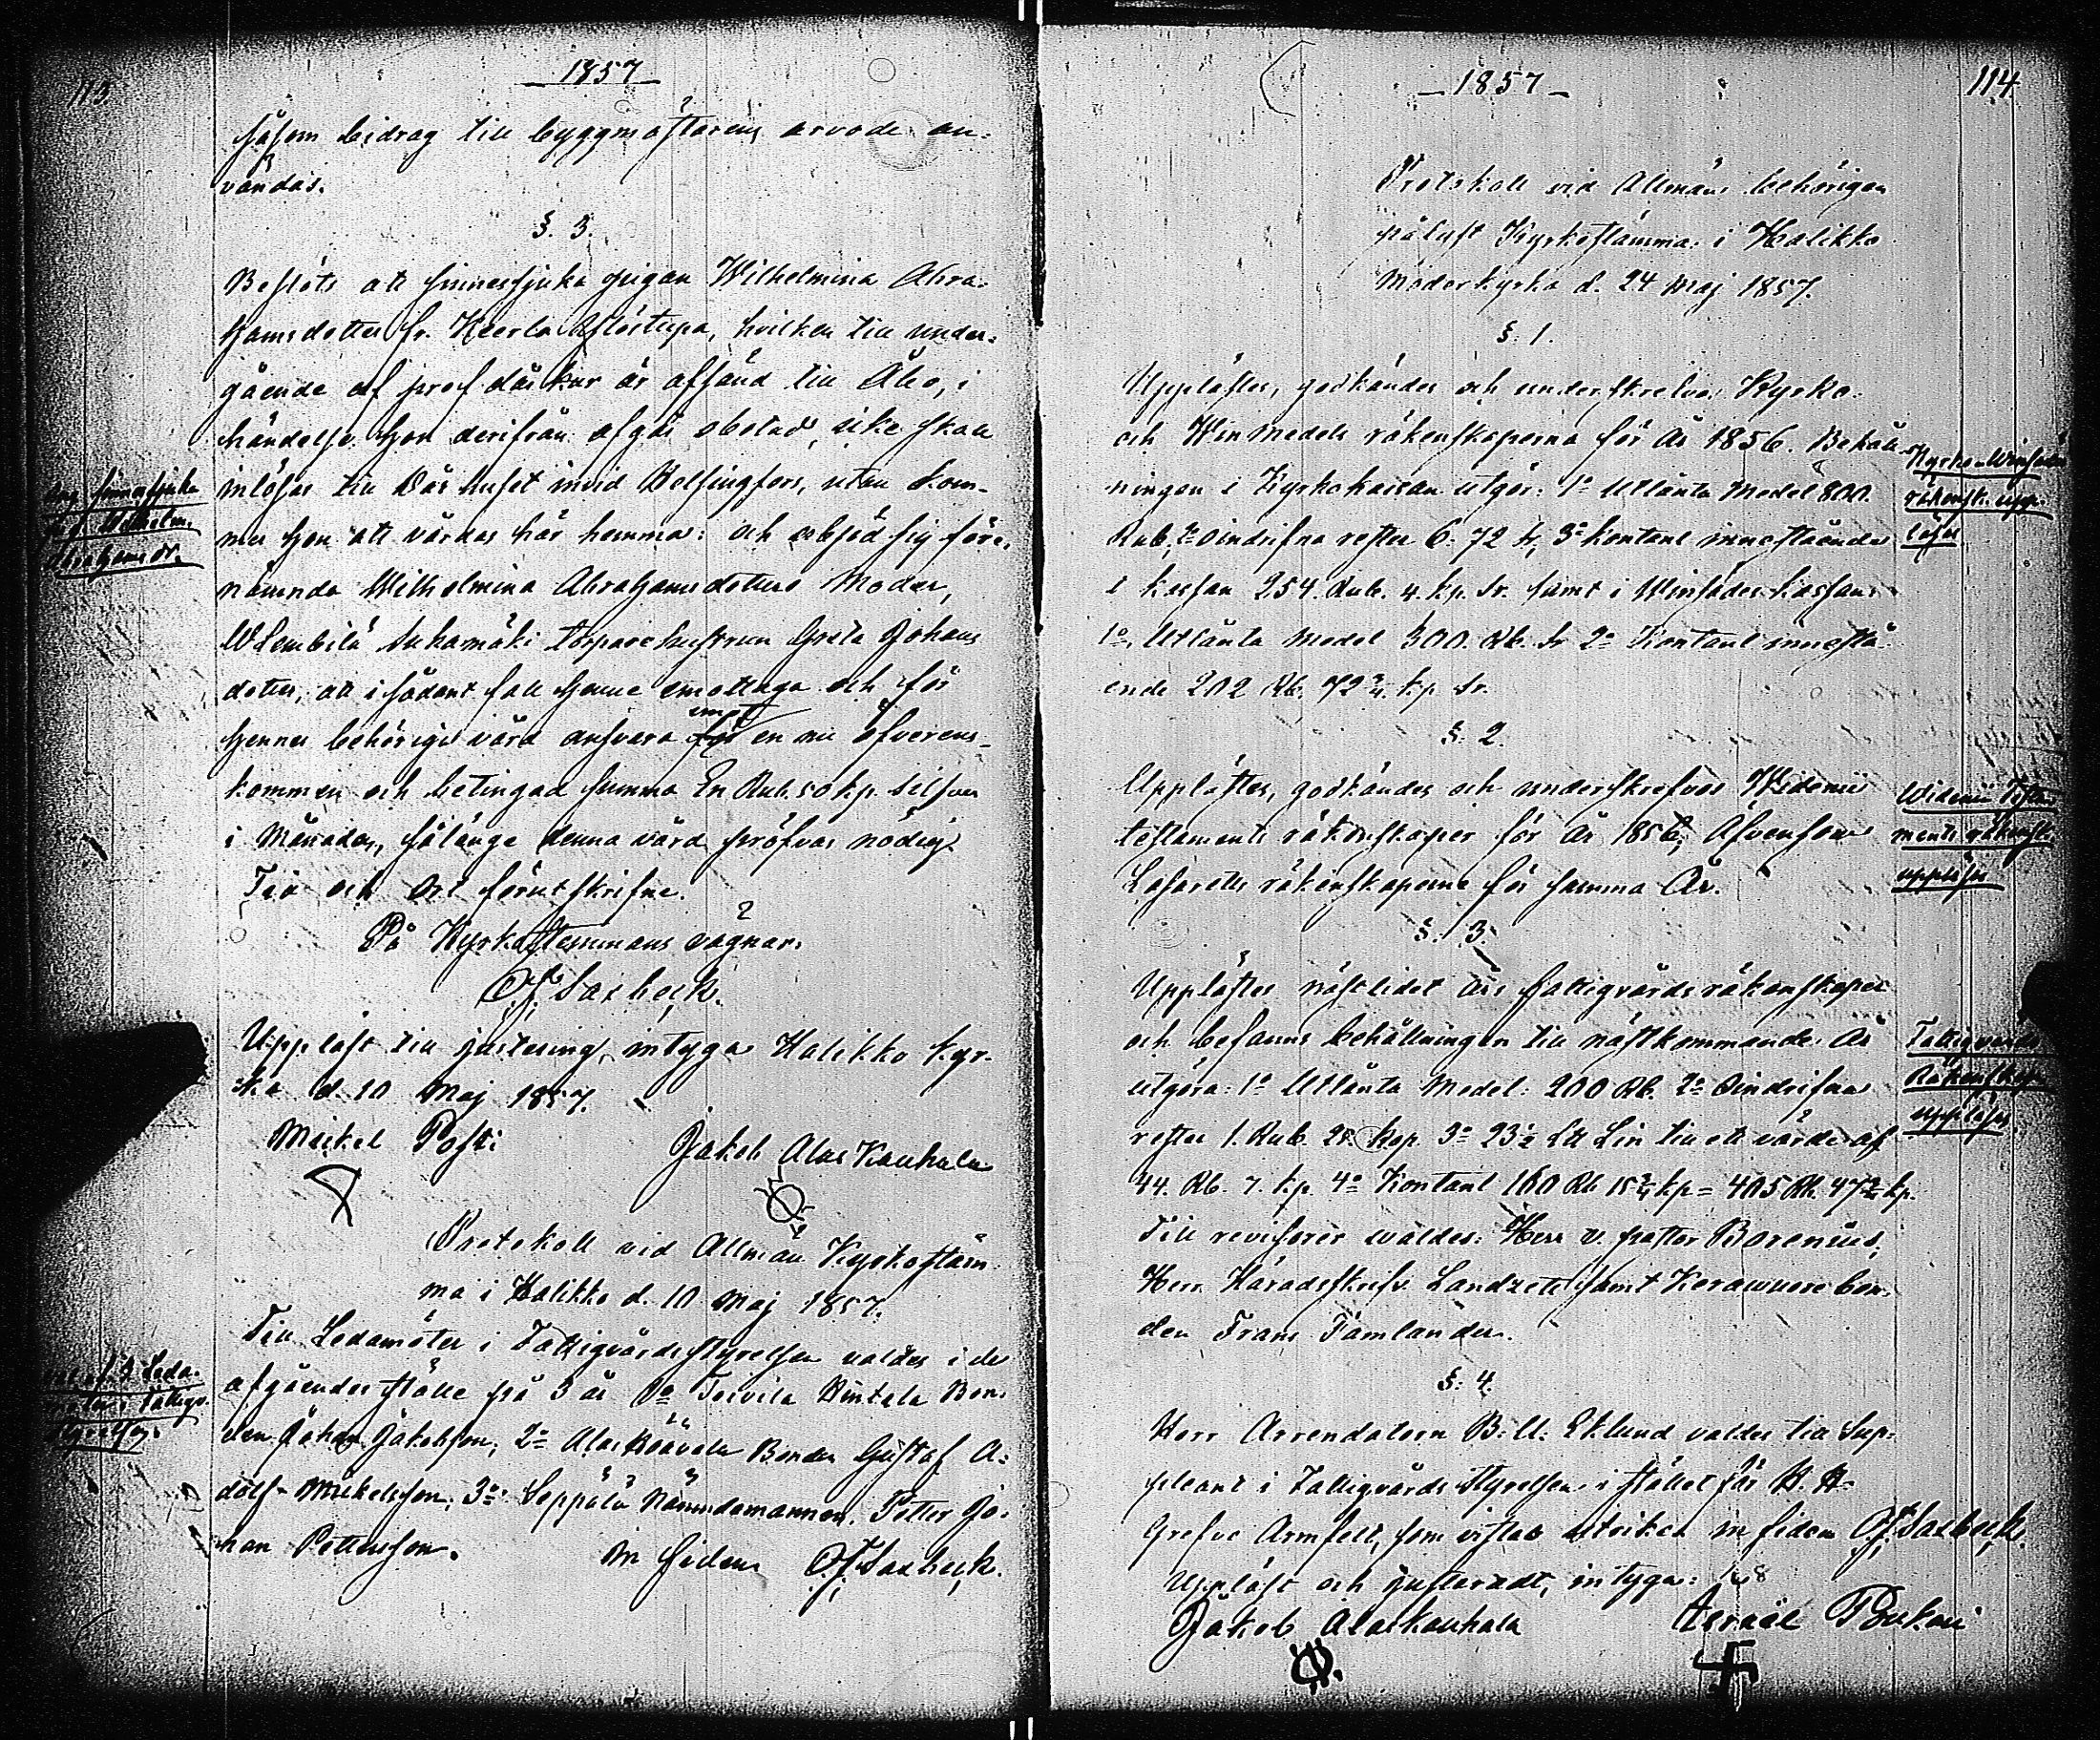 113.
1857
såsom bidrag till byggmästarens arvode an-
vändas.
§. 3.
Beslöts att sinnessjuka pigan Wilhelmina Abra-
hamsdotter fr. Keerla, hvilken till under-
gående af prof dårkur är afsänd till Åbo, i
händelse hon derifrån afgår obotad, icke skall
inlösas till Dårhuset invid Helsingfors, utan kom-
mer hon att vårdas här hemma: och åtsjöd sig före-
nämnda Wilhelmina Abrahamsdotters Moder,
Wlembilä Suhamäki torparehustrun Greta Johans
dotter, att i sådant fall henne emottaga och för
hennes behöriga vård ansvara emot en nu öfverens-
kommen och betingad summa En Rub. 50 kp. silfver
i Månaden, sålänge denna vård pröfvas nödig.
Tid och Ort förutskrifne.
På Kyrkostemmans vägnar.
O.J. Saxbeck.
Uppläst till justering, intyga Halikko kyr-
ka d. 10 Maj 1857.
Mickel Posti
Jakob Alas Kauhala
Protokoll vid Allmän Kyrkostäm-
ma i Halikko d. 10 Maj 1857.
Till Ledamöter i Fattigvårds styrelsen valdes i de
afgåendes ställe på 3 år 1o Toivila Hintala Bon-
den Johan Jakobsson, 2o Alas Bonden Gustaf A-
dolf Mickelsson, 3o Seppälä Nämndemannen, Petter Jo-
han Pettersson.
In fidem O.J. Saxbeck.
Ang. sinnessjuka
pig. Wilhelm.
Abrahams dr.
val af 3 Leda-
möter i Fattigv.
styrelsen.
1857
114
Protokoll vid Allmän behörigen
pålyst Kyrkostämma i Halikko
Moderkyrka d. 24 Maj 1857.
§. 1.
Upplästes, godkändes och underskrefvos Kyrko-
och Winmedels räkenskaperna för År 1856. Behåll-
ningen i Kyrkokassan utgör: 1o Utlånta Medel 800.
Rub. 2o Oindrifna rester 6. 72 sr, 3o kontant inneståendes
i kassan 254. Rub. 4. kp. Sr. samt i Winsädes kassan
1o Utlånta Medel 300. Rb. Sr 2o Kontant innestå-
ende 202 Rb. 72 ¾. kp. Sr.
§. 2.
Upplästes, godkändes och underskrefvos Widenii
testaments räkenskaper för År 1856, Äfvensom
Lasaretts räkenskaperne för samma År.
§. 3.
Upplästes nästlidet års fattigvårds räkenskaper
och befanns behållningen till nästkommande år
utgöra: 1o Utlånta Medel: 200 Rb. 2o Oindrifna
rester 1. Rub. 25. kop. 3o 23½ L℔ Lin till ett värde af
44. Rb. 7. kp. 4o Kontant 160 Rb 15¾ kp = 405 Rb. 47¾ kp.
Till revisorer valdes: Herr v. pastor Borenius,
Herr Häradsskrifv. Landzett samt Kerawuore bon-
den Frans Tämlander.
§. 4.
Herr Arrendatorn B. U. Eklund valdes till Sup-
pleant i Fattigvårds Styrelsen i stället för H. H.
Grefve Armfelt, som utviker in fidem O.J. Saxbeck.
Uppläst och justeradt, intyga:
Jakob Alaskauhala
Israel Pukari
Kyrko-Winsäds
räkensk. upp-
läses
Widenii Testa-
ments räkensk.
uppläses
Fattigvårds
Räkenskap.
uppläses